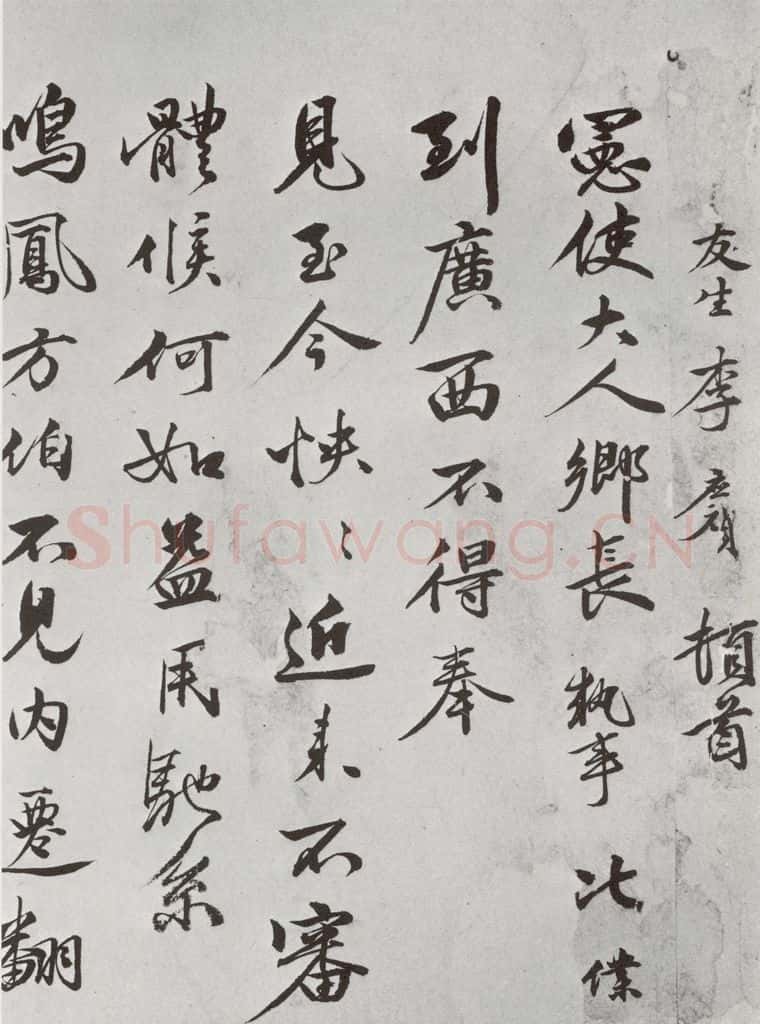 友生李應禎頓首
憲使大人鄉長執事比僕
到廣西不得奉
見至今怏〻近来不審
體候何如益用馳系
鳴鳳方伯不見内遷翻
Shufawang.CN